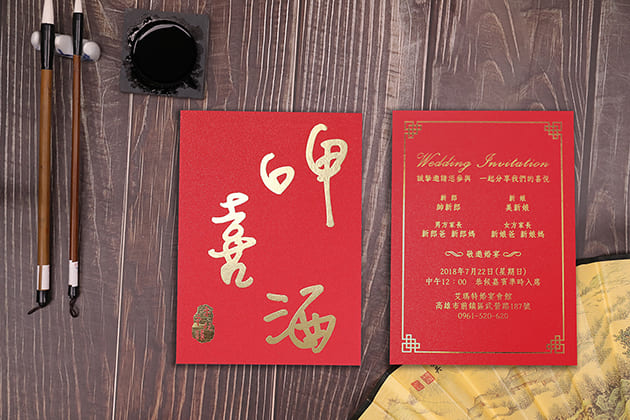 呷
喜
酒
Wedding Invitation
誠摯邀請您參與 一起分享我們的喜悅
新郎 新娘
帥新郎 美新娘
男方家長 女方家長
新郎爸 新郎媽 新娘爸 新娘媽
敬邀婚宴
2018年7月22日(星期日)
中午12：00 恭候嘉賓準時入席
艾瑪特婚宴會館
高雄市前鎮區武營路187號
0961-520-620